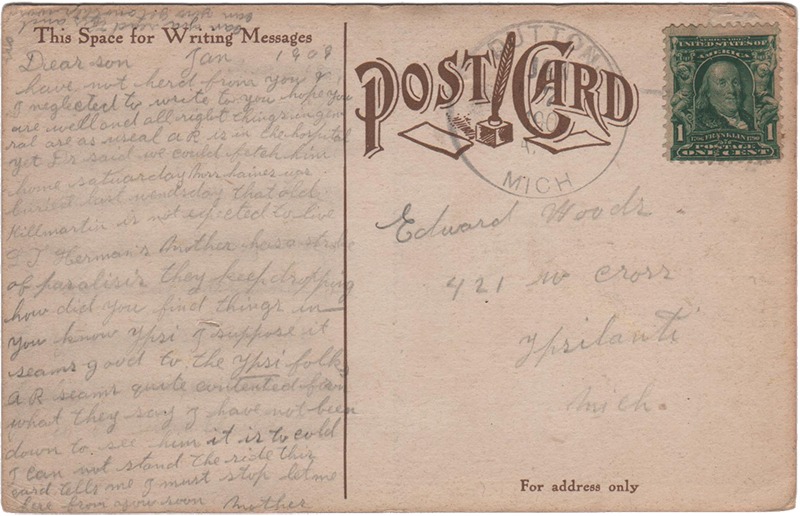 This Space for Writing Messages
Dear son Jan 1909
have not herd from you &
I neglected to write to you hope you
are well and all right things in gen
ral are as useal A R is in the hospital
yet Dr said we could fetch him
home satuarday Mrs haines was
buried last wendsday that old
Killmartin is not expected to live
Herman's Mother has a stroke
of paralisis they keep dropping
how did you find things in
you know Ypsi I suppose it
seams good to the Ypsi folks
A R seams quite contented from
what they say I have not been
down to see him it is to cold
I can not stand the ride this
card tells me I must stop let me
here from you soon Mother
POST CARD
DUTTON
MICH
UNITED STATES OF
AMERICA
1 FRANKLIN 1
POSTAGE
ONE CENT
Edward Woods
421 W Cross
Ypsilanti
Mich.
For address only